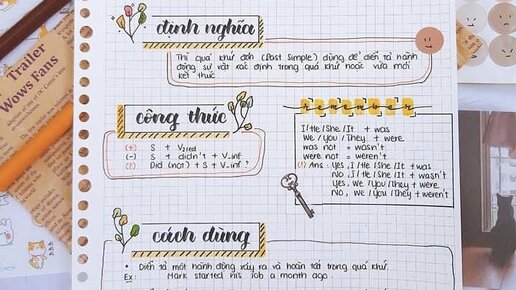 Trailer
Wows Fans
định nghĩa
Thì quá khứ đơn (Past Simple) dùng để diễn tả hành
động sự vật xác định trong quá khứ hoặc vừa mới
kết thúc
công thức
(+) S + V2/ed
(-) S + didn't + V-inf
(?) Did (not) + S + V-inf ?
remember
I/He/She/It + was
We/You/They + were.
was not = wasn't
were not = weren't
(?) Ans: Yes, I/He/She/It + was
No, I/He/She/It + wasn't
Yes, We/You/They + were
No, We/You/They + weren't
cách dùng
• Diễn tả một hành động xảy ra và hoàn tất trong quá khứ.
Ex: Mark started his job a month ago.